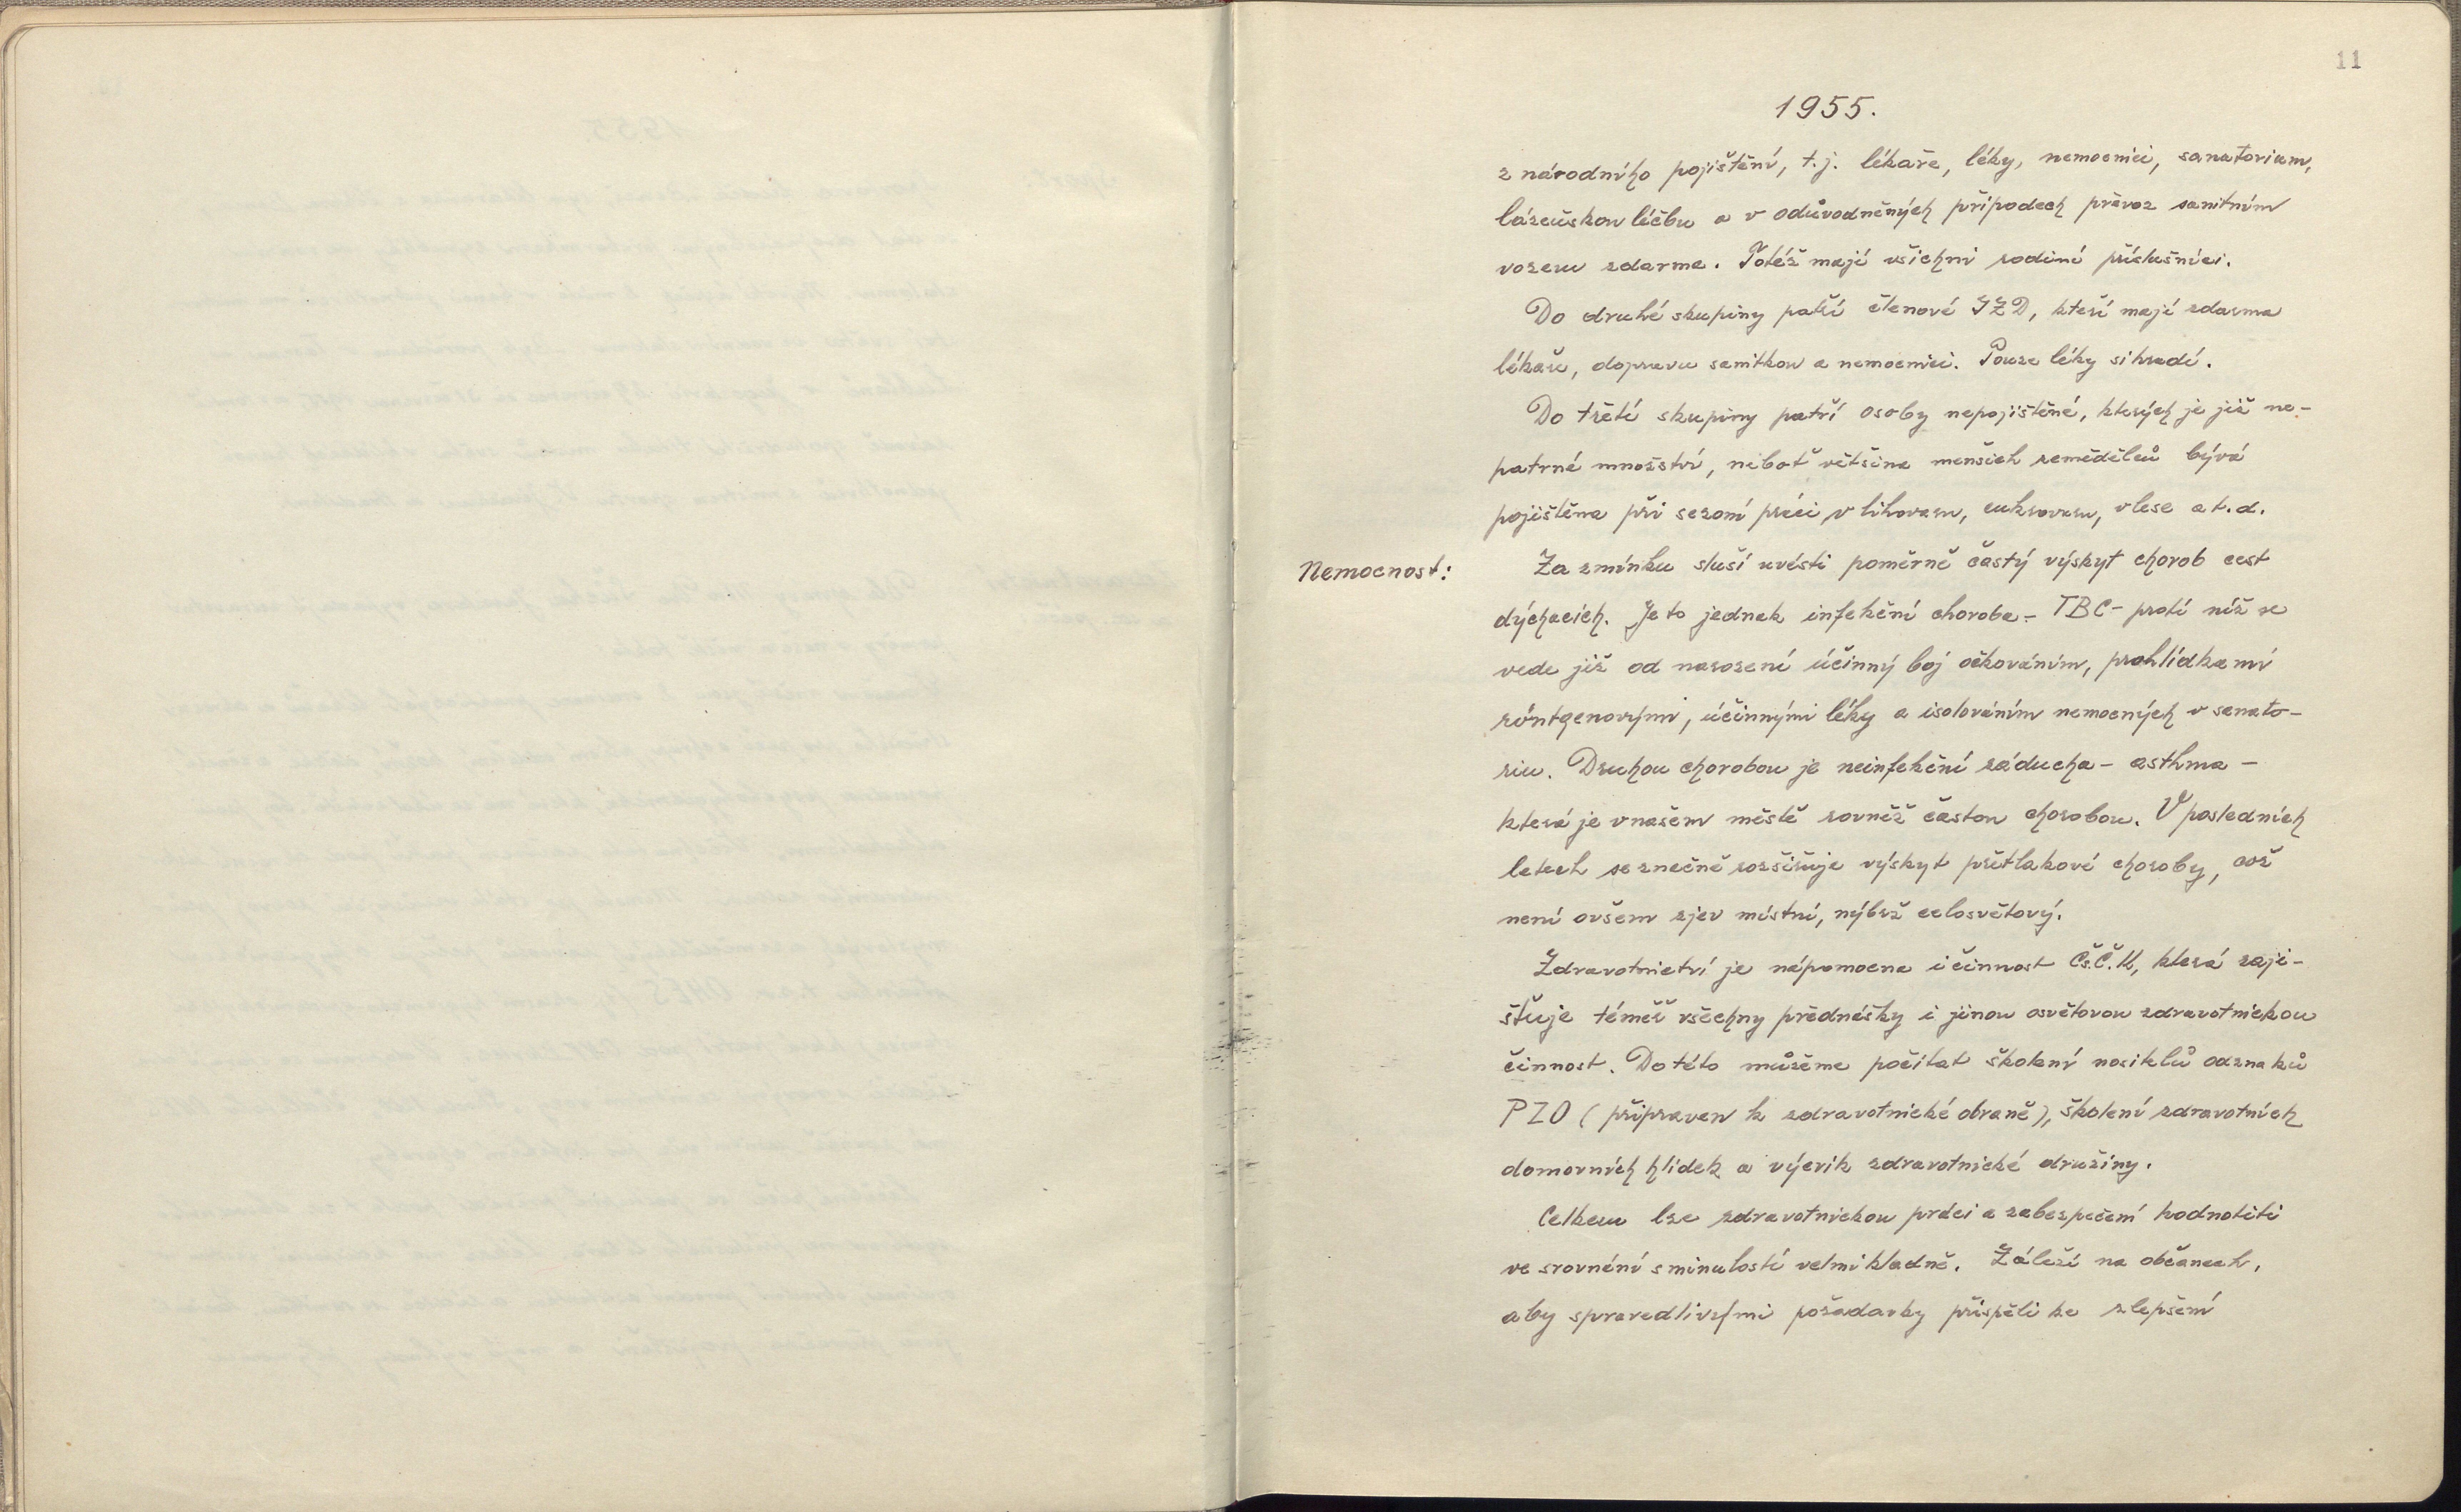 11
1955.
z národního pojištění, t.j. lékaře, léky, nemocnici, sanatorium,
lázeňskou léčbu a v odůvodněných případech převoz sanitním
vozem zdarma. Totéž mají všichni rodinní příslušníci.
Do druhé skupiny patří členové JZD, kteří mají zdarma
lékaře, dopravu sanitkou a nemocnici. Pouze léky si hradí.
Do třetí skupiny patří osoby nepojištěné, kterých je již ne-
patrné množství, neboť většina menších zemědělců bývá
pojištěna při sezoní práci v lihovaru, cukrovaru, v lese a t. d.
Nemocnost: Za zmínku sluší uvésti poměrně častý výskyt chorob cest
dýchacích. Je to jednak infekční choroba - TBC - proti níž se
vede již od narození účinný boj očkováním, prohlídkami
röntgenovými, účinnými léky a isolováním nemocných v sanato-
riu. Druhou chorobou je neinfekční záducha - asthma -
která je v našem městě rovněž častou chorobou. V posledních
letech se značně rozšiřuje výskyt přetlakové choroby, což
není ovšem zjev místní, nýbrž celosvětový.
Zdravotnictví je nápomocna i činnost Čs.Č.K, která zaji-
šťuje téměř všechny přednášky i jinou osvětovou zdravotnickou
činnost. Do této můžeme počítat školení nositelů odznaků
PZO (připraven k zdravotnické obraně), školení zdravotních
domovních hlídek a výcvik zdravotnické družiny.
Celkem lze zdravotnickou práci a zabezpečení hodnotiti
ve srovnání s minulostí velmi kladně. Záleží na občanech,
aby spravedlivými požadavky přispěli ke zlepšení